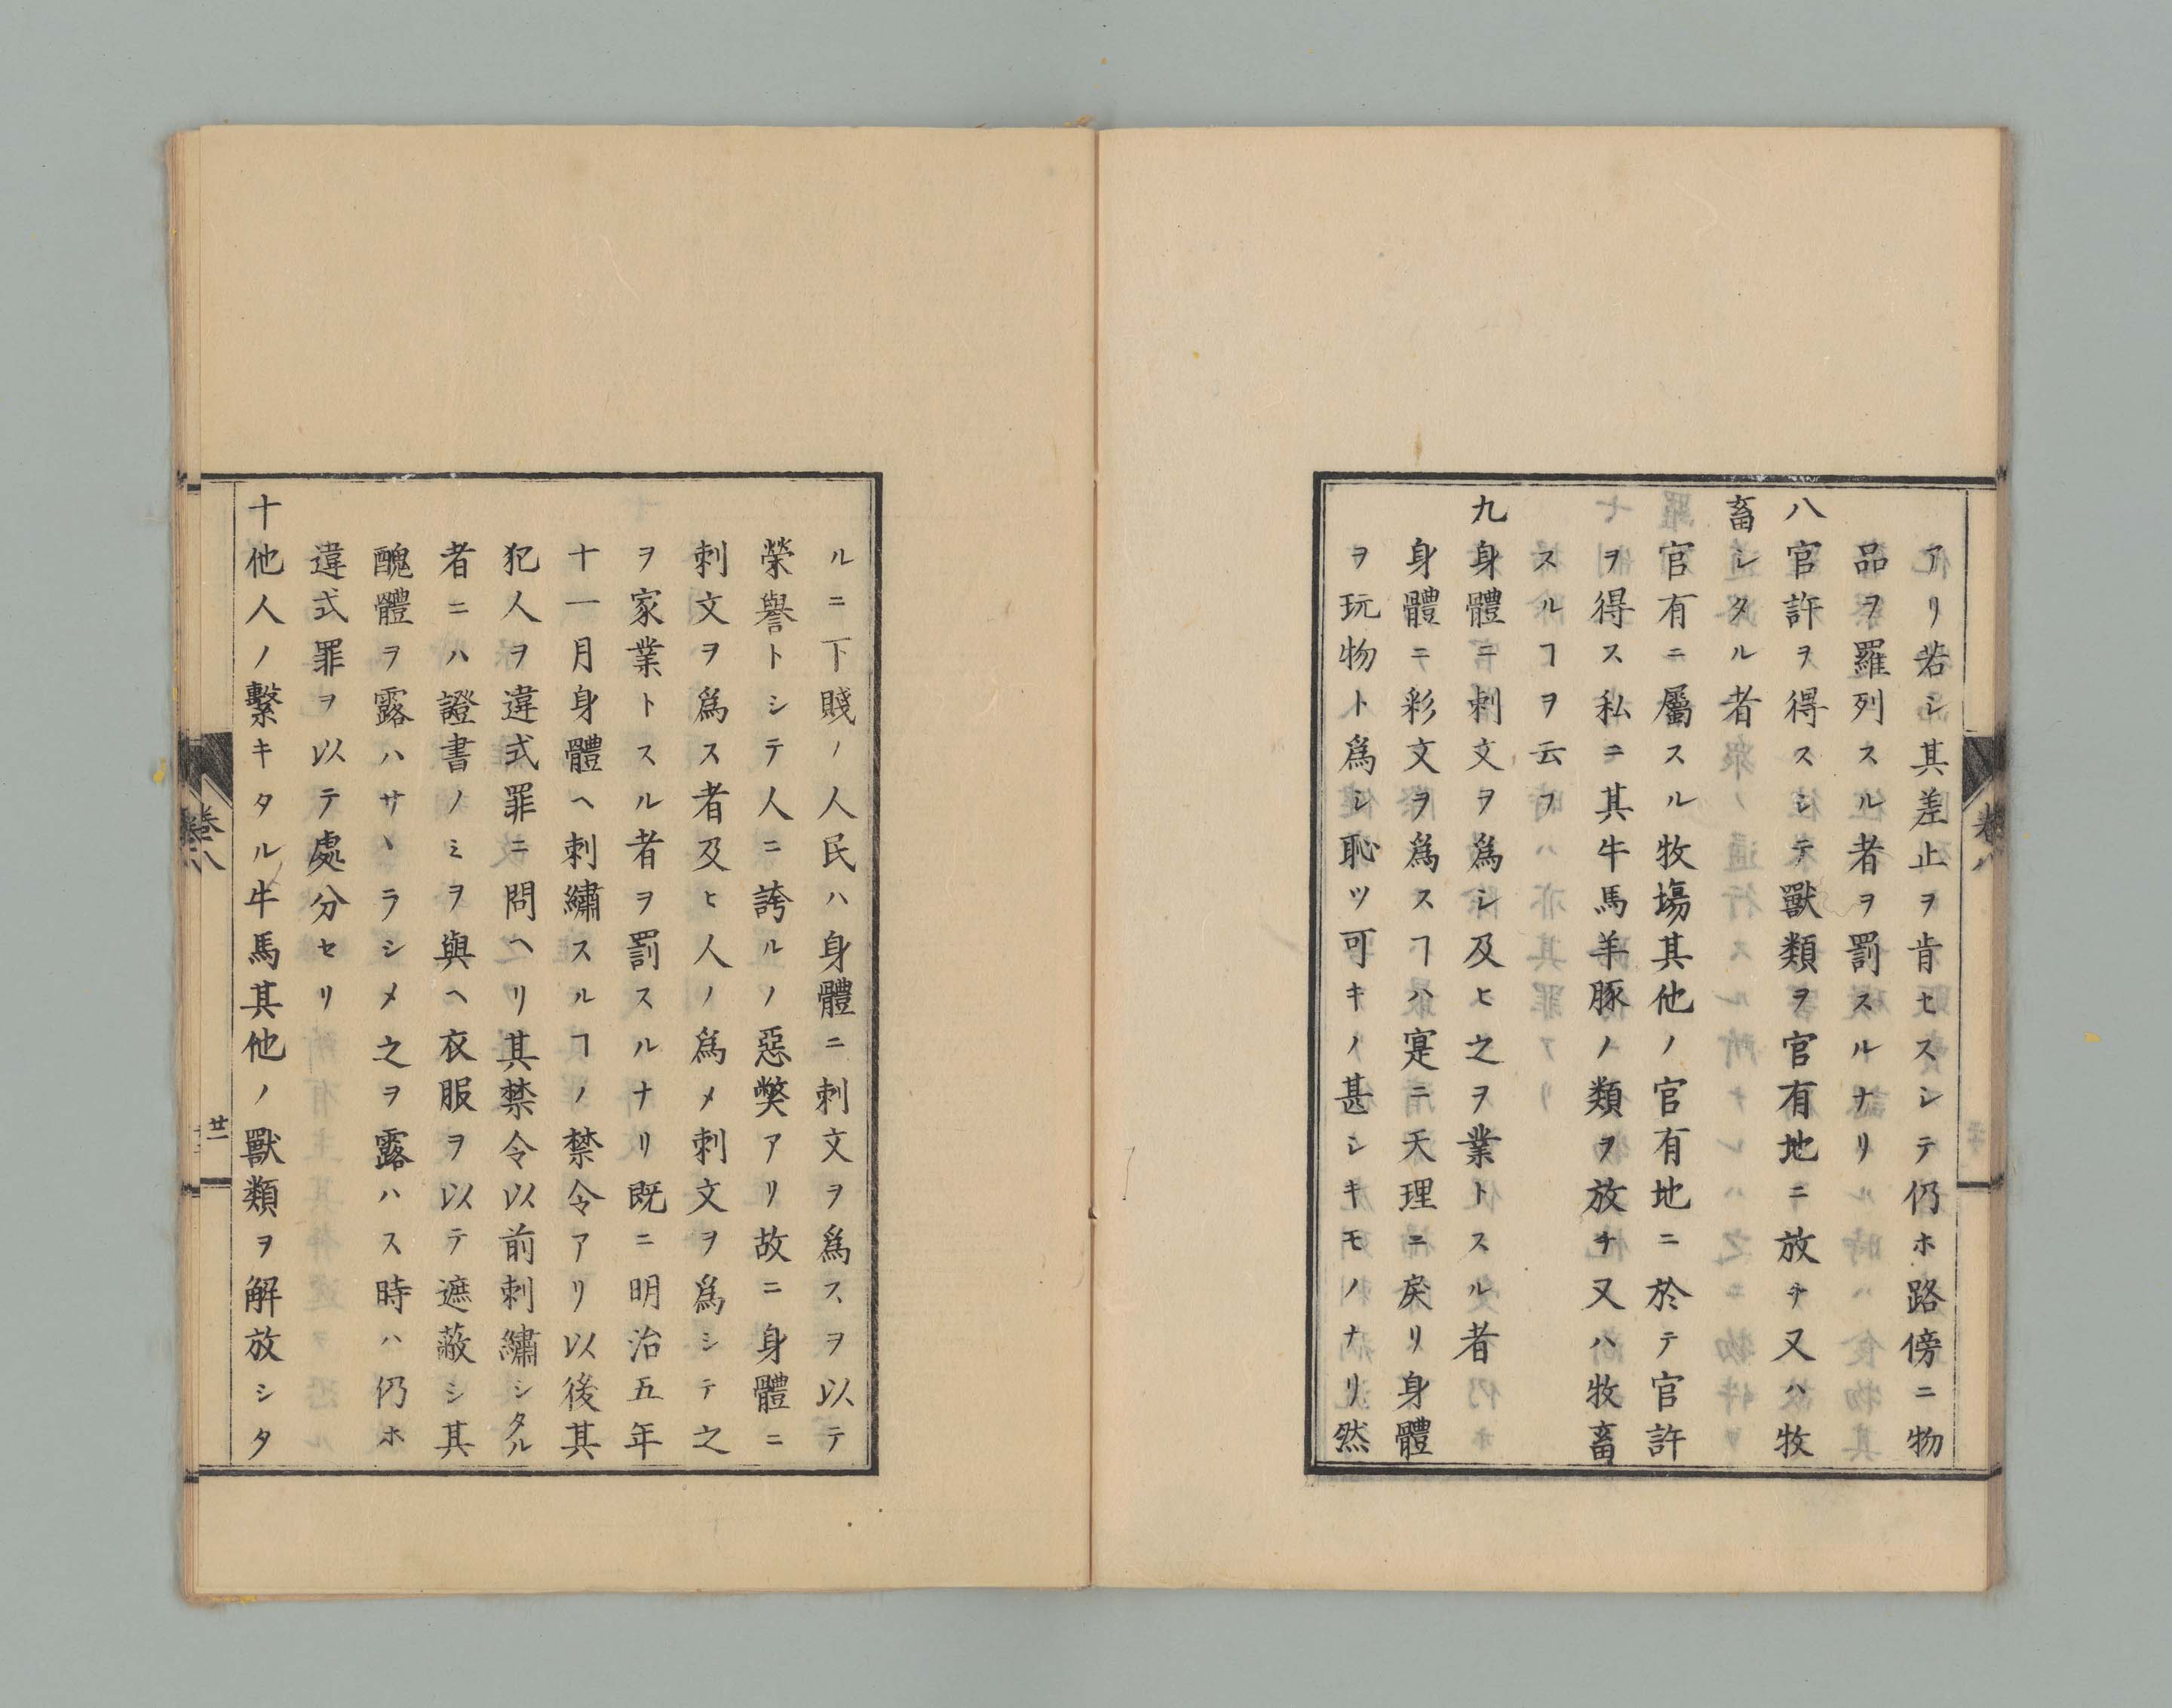 アリ若シ其差止ヲ肯セスシテ仍ホ路傍ニ物
品ヲ羅列スル者ヲ罰スルナリ
八官許ヲ得スシテ獸類ヲ官有地ニ放チ又ハ牧
畜シタル者
官有ニ屬スル牧塲其他ノ官有地ニ於テ官許
ヲ得ス私ニ其牛馬羊豚ノ類ヲ放チ又ハ牧畜
スルヿヲ云フ
九身體ニ刺文ヲ爲シ及ヒ之ヲ業トスル者
身體ニ彩文ヲ爲スヿハ寔ニ天理ニ戾リ身體
ヲ玩物ト爲シ恥ツ可キノ甚シキモノナリ然
卷八
ルニ下賤ノ人民ハ身體ニ刺文ヲ爲スヲ以テ
榮譽トシテ人ニ誇ルノ惡弊アリ故ニ身體ニ
刺文ヲ爲ス者及ヒ人ノ爲メ刺文ヲ爲シテ之
ヲ家業トスル者ヲ罰スルナリ既ニ明治五年
十一月身體ヘ刺繡スルヿノ禁令アリ以後其
犯人ヲ違式罪ニ問ヘリ其禁令以前刺繡シタル
者ニハ證書ノミヲ與ヘ衣服ヲ以テ遮蔽シ其
醜體ヲ露ハサヽラシメ之ヲ露ハス時ハ仍ホ
違式罪ヲ以テ處分セリ
十他人ノ繫キタル牛馬其他ノ獸類ヲ解放シタ
卷八
廿一